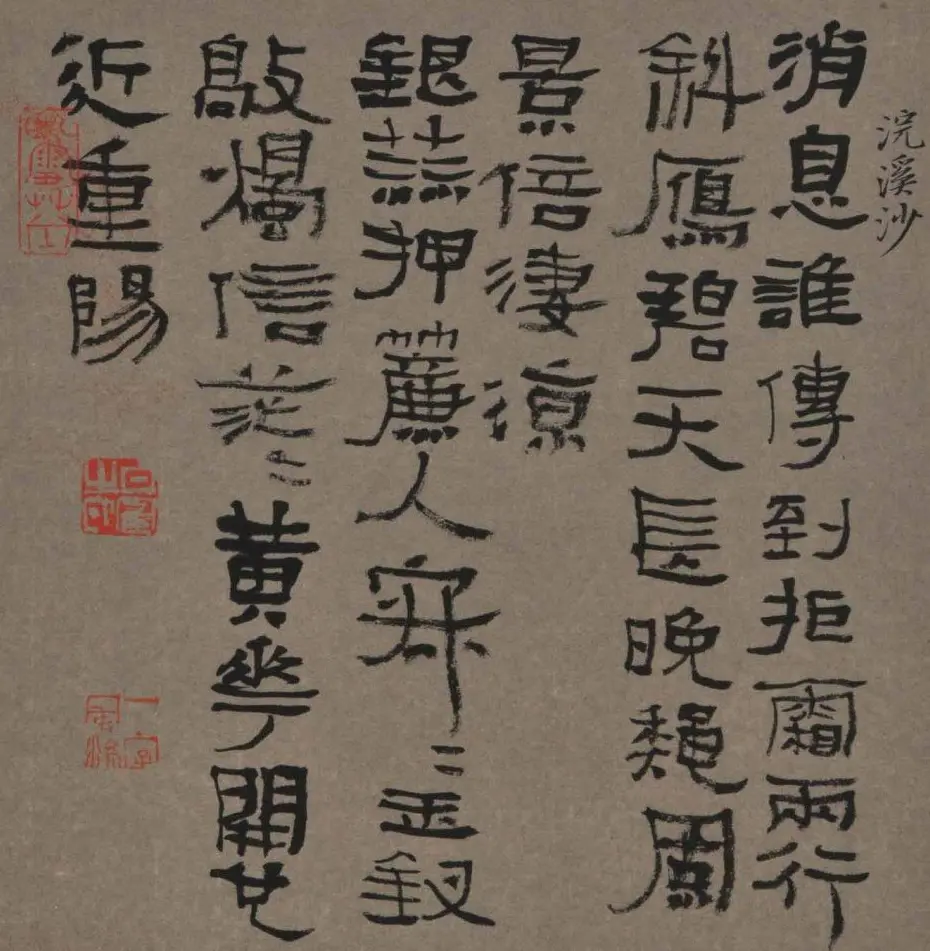 浣溪沙
消息誰傳到拒霜兩行
斜鴈碧天長晚龝風
景倍淒涼
銀蒜押簾人寂〻玉釵
敲燭信茫〻黃華開也
近重陽